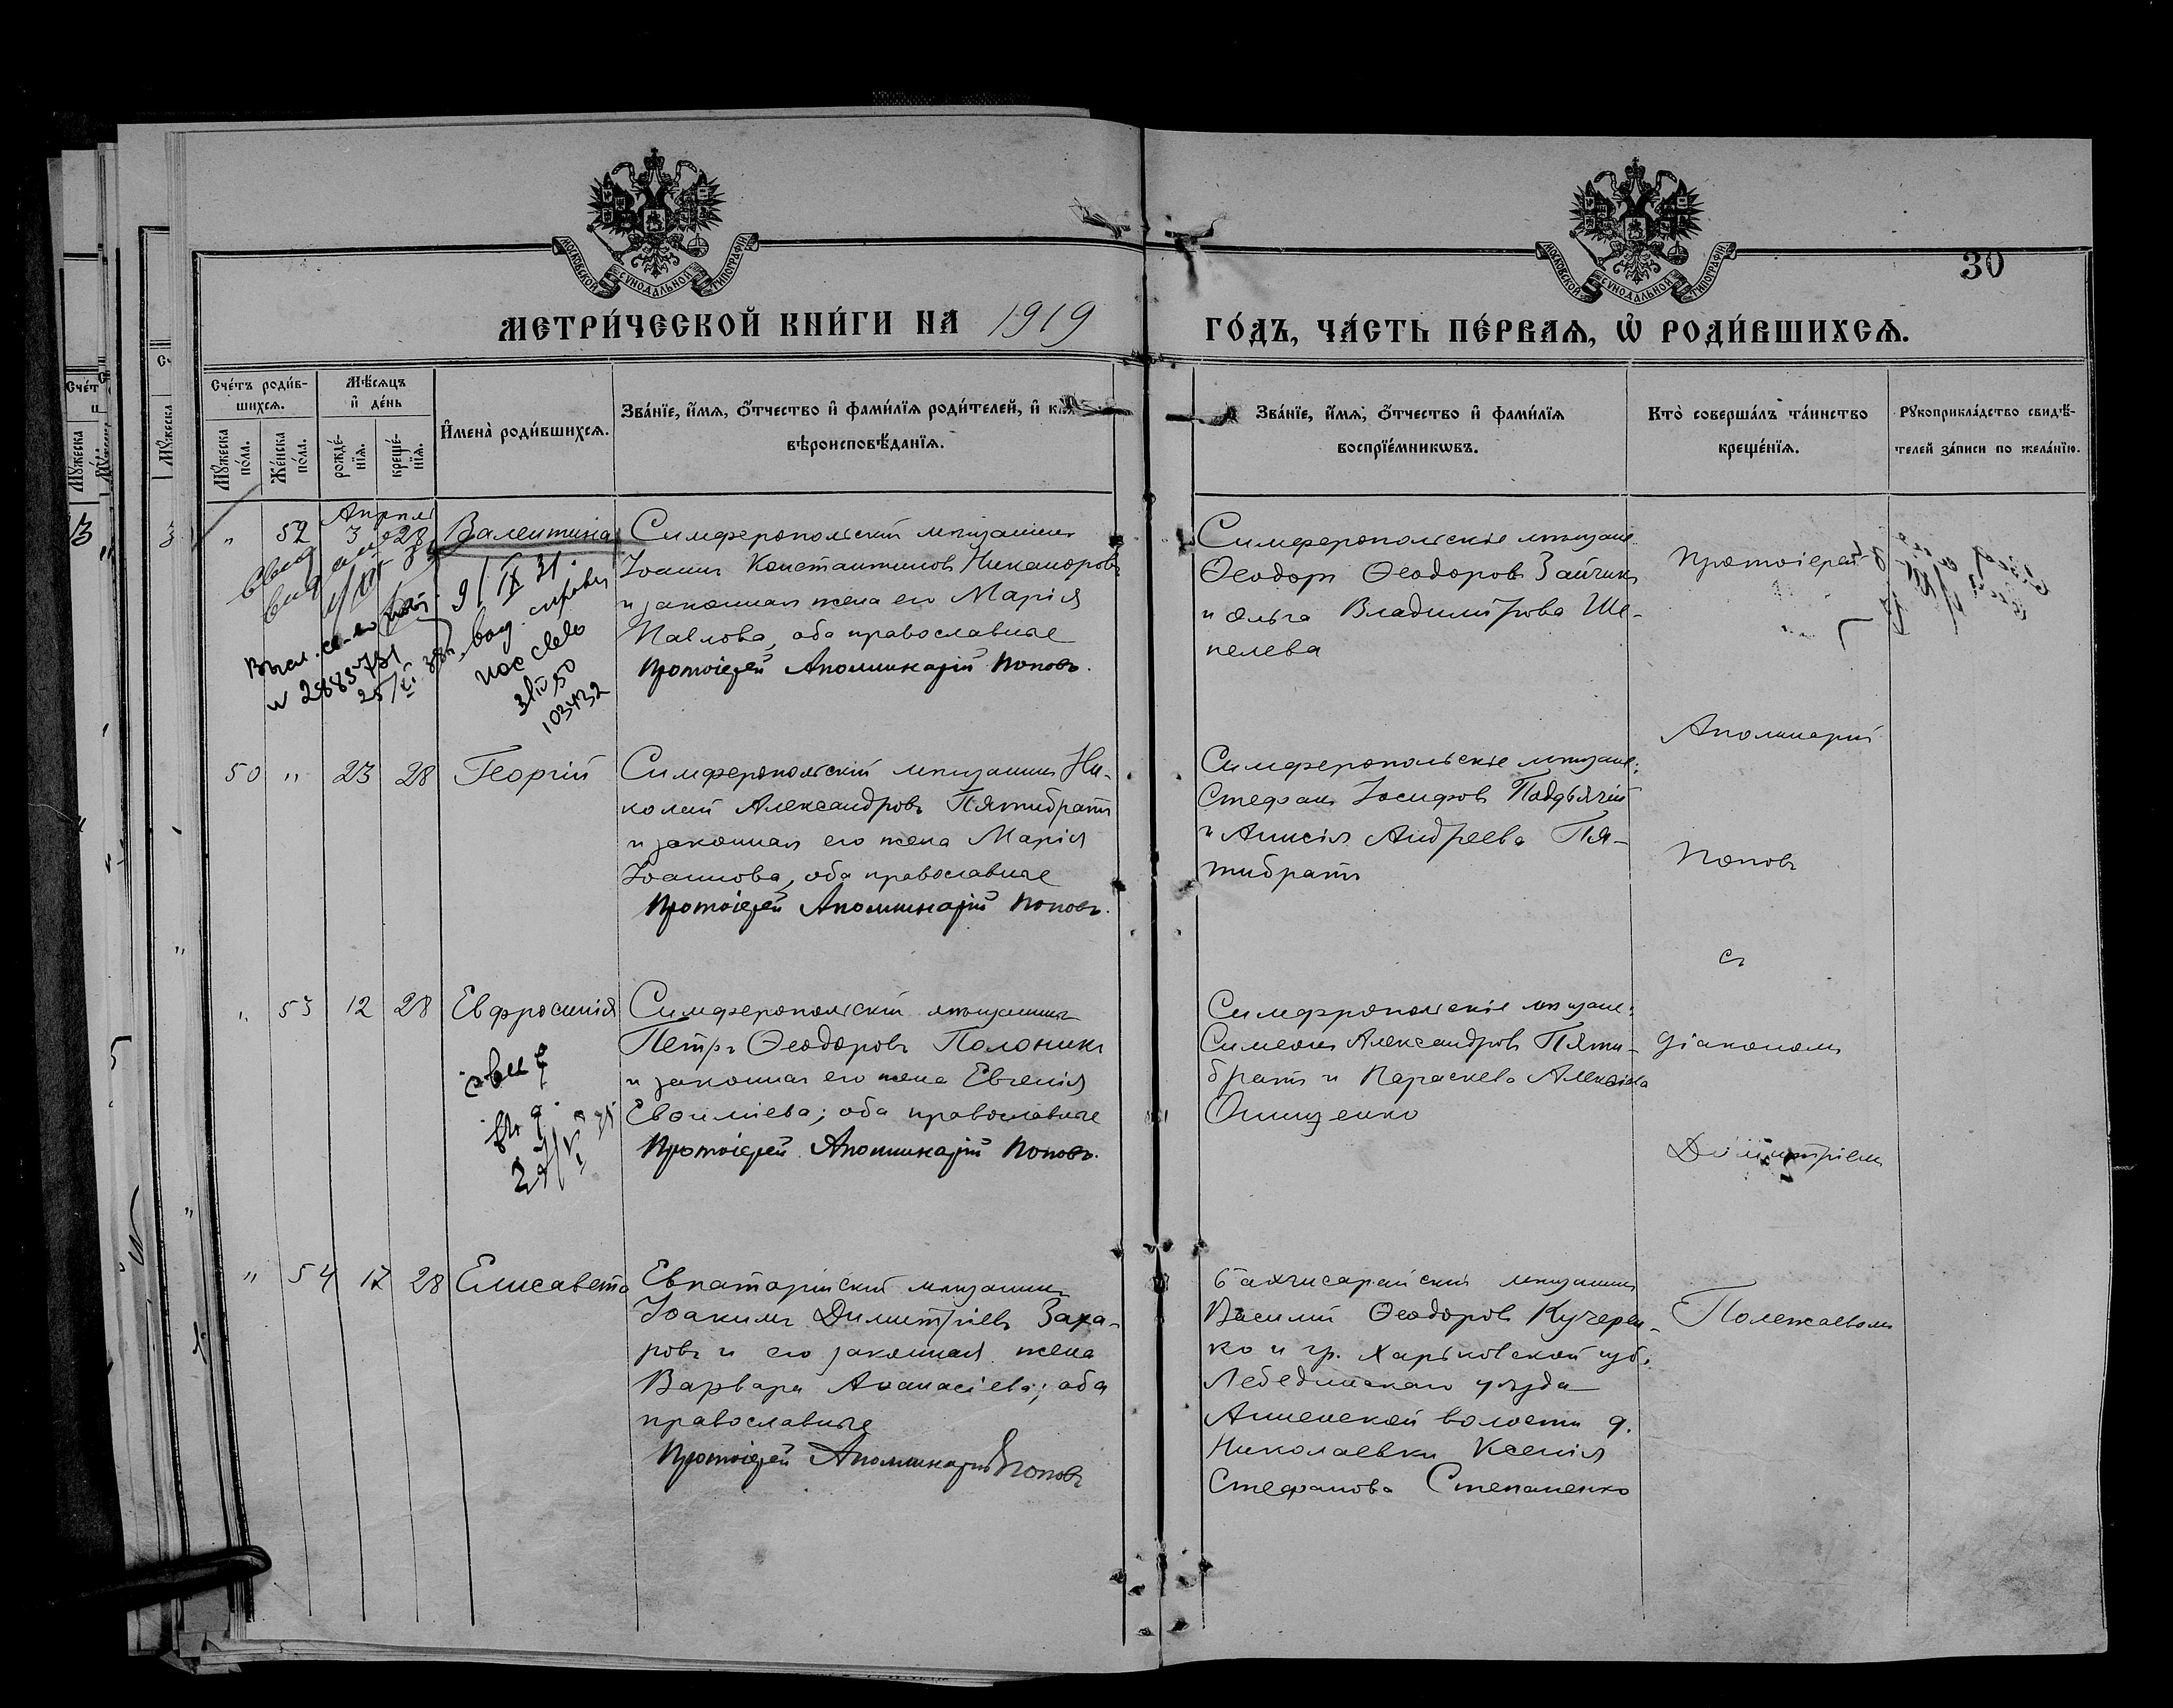 МОСКОВСКОЙ СѴНОДАЛЬНОЙ ТИПОГРАФІИ
МОСКОВСКОЙ СѴНОДАЛЬНОЙ ТИПОГРАФІИ
30
МЕТРИ́ЧЕСКОЙ КНИ́ГИ НА 1919
ГО́ДЪ, ЧА́СТЬ ПЕ́РВАѦ, Ѡ҆ РОДИ́ВШИХСѦ.
Сче́тъ роди́в-
шихсѧ.
Мꙋ́жеска по́ла.
Же́нска по́ла.
Мѣ́сѧцъ
и҆ де́нь
рожде́-
нїѧ.
креще́-
нїѧ.
И҆мена̀ роди́вшихсѧ.
Зва́нїе, и҆́мѧ, ѻ҆́тчество и҆ фами́лїѧ роди́телей, и҆
вѣроисповѣ́данїѧ.
Зва́нїе, и҆́мѧ, ѻ҆́тчество и҆ фами́лїѧ
воспрїе́мникѡвъ.
Кто̀ соверша́лъ та́инство
креще́нїѧ.
Рꙋкоприкла́дство свидѣ́-
телей за́писи по жела́нїю.
Апрѣль
" 52 3 28 Валентина
9/IX 31.
3/IV 50
103432
Симферопольскій мѣщанинъ
Іоаннъ Константиновъ Никаноровъ
и законная жена его Марія
Павлова, оба православные
Протоіерей Аполлинарій Поповъ.
Симферопольскіе мѣщане
Ѳеодоръ Ѳеодоровъ Зайчикъ
и Ольга Владимірова Ше-
пелева
50 " 23 28 Георгій
Симферопольскій мѣщанинъ Ни-
колай Александровъ Пятибратъ
и законная его жена Марія
Іоаннова, оба православные
Протоіерей Аполлинарій Поповъ.
Симферопольскіе мѣщане:
Стефанъ Іосифовъ Поддьячій
и Анисія Андреева Пя-
тибратъ
" 53 12 28 Евфросинія
Симферопольскій мѣщанинъ
Петръ Ѳеодоровъ Полоникъ
и законная его жена Евгенія
оба православные
Протоіерей Аполлинарій Поповъ.
Симферопольскіе мѣщане:
Симеонъ Александровъ Пяти-
братъ и Параскева Алексіева
Онищенко
" 54 17 28 Елисавета
Евпаторійскій мѣщанинъ
Іоакимъ Димитріевъ Заха-
ровъ и его законная жена
Варвара Аѳанасіева; оба
православные
Протоіерей Аполлинарій Поповъ
Бахчисарайскій мѣщанинъ
Василій Ѳеодоровъ Кучерен-
ко и гр. Харьковской губ.
Лебединскаго уѣзда
волости д.
Николаевки Ксенія
Стефанова Степаненко
Протоіерей
Аполинарій
Поповъ
съ
діакономъ
Димитріемъ
Полежаевомъ